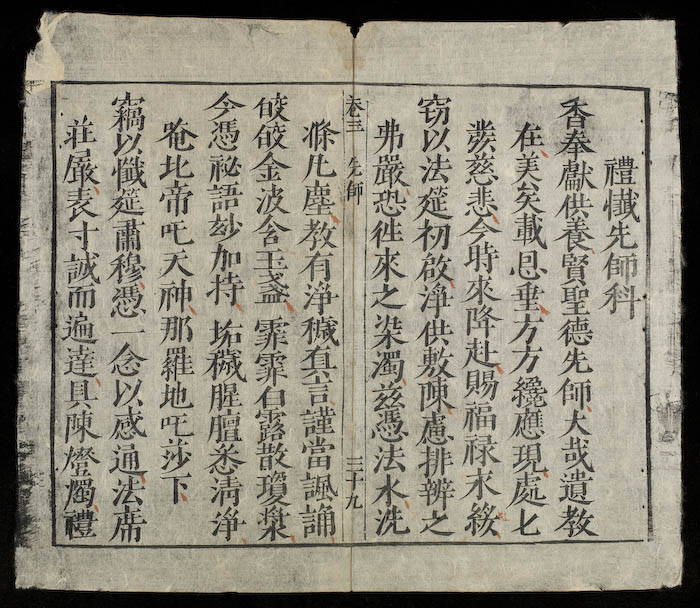 禮懺先師科
香奉獻供養賢聖德先師大哉遺教
在美矣載恩垂方方纔應現處匕
發慈悲今時來降赴賜福禄永綏
窃以法筵初啟淨供敷陳慮排辨之
弗嚴恐徃來之染濁兹憑法水洗
卷三 先師 三十九
滌凡塵教有淨穢真言謹當諷誦
皎皎金波含玉盞霏霏白露散瓊漿
今憑祕語玅加持垢穢腥膻悉清淨
唵比帝吒天神那羅地吒莎下
竊以懺筵肅穆憑一念以感通法席
莊嚴表寸誠而遍達具陳燈燭禮